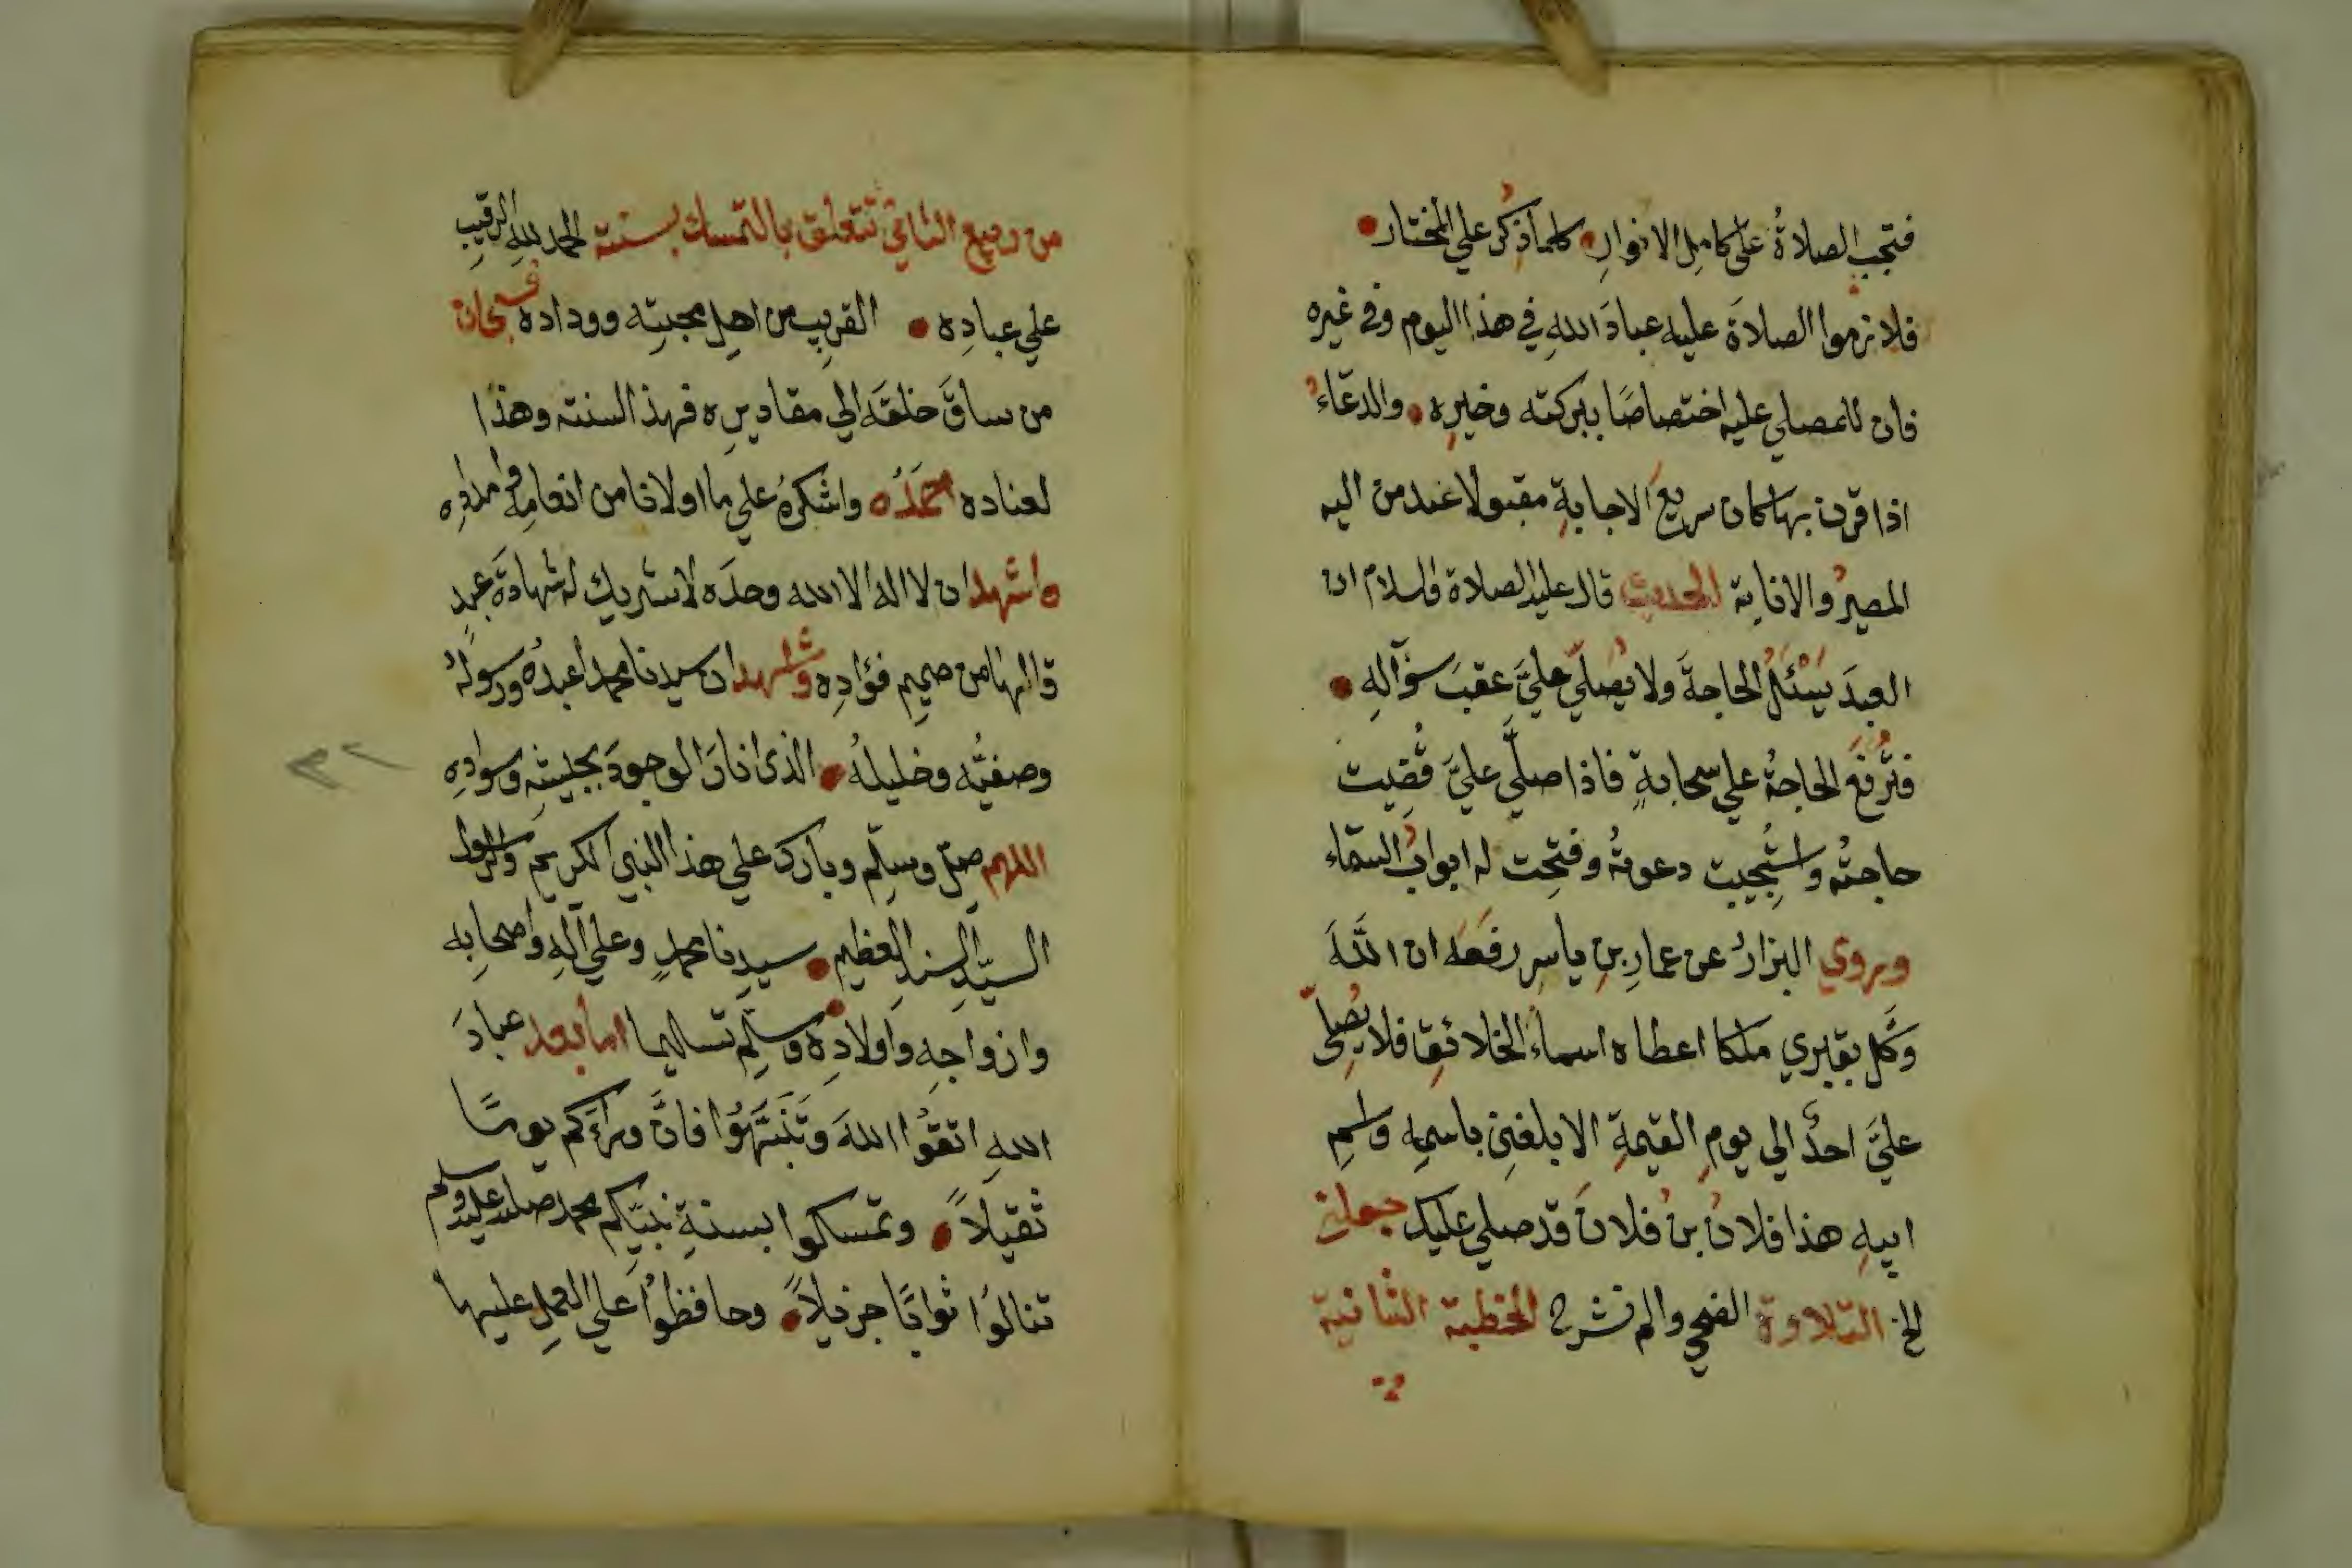 فتجب الصلاةُ على كامِلِ الانوارِ كلما ذُكر علي المختار
فلازموا الصلاةَ عليه عبادَ اللهِ في هذا اليوم وفي غيره
فان للمصلي عليه اختصاصًا ببركته وخيرِه والدعاءُ
اذا قرن بها كان سريعَ الاجابةِ مقبولا عند من اليه
المصيرُ والانابة الحديث قال عليه الصلاة والسلام ان
العبدَ يَسْئَلُ الحاجةَ ولا يُصلّي عليَّ عقبَ سؤآلهِ
فتُرفَعُ الحاجةُ علي سحابةٍ فاذا صلَّي عليَّ قُضِيت
حاجتُه واستُجِيبت دعوتُه وفتِحت له ابوابُ السمّاء
ويروي البزارُ عن عمارِ بنِ ياسرٍ رفَعَه ان اللهَ
وَكَّل بقبري ملكا اعطاه اسماءَ الخلائقِ فلا يُصلِّي
عليَّ احدٌ الي يومِ القيمةِ الا بلغنِي باسمِه واسمِ
ابيهِ هذا فلانُ بنُ فلانَ قد صلي عليك
الخ التلاوة الضحي والم نشرح الخطبة الثانية
من ربيع الثاني تتعلق بالتمسك بسنته الحمد للهِ الرقيبِ
علي عبادِه القريبِ من اهلِ محبتِه وودادِه فسبحان
من ساقَ خلقَه الي مقاديرِه فهذا لسنته وهذا
لعناده احمَدُه واشكرُهُ علي ما اولانا من انعامِه وامدادِه
واشهد ان لا اله الا الله وحدَه لا شريك له شهادَةَ عبدٍ
قالها من صميمِ فؤادِه واشهد ان سيدنا محمدا عبدُه ورسولُهُ
وصفيُّه وخليلهُ الذي انارَ الوجودَ بجبينِه وسوادِه
اللهم صلّ وسلّم وبارك علي هذا النبي الكريم والرسول
السيّدِ السندِ العظيم سيدِنا محمدٍ وعلي آلهِ واصحابِه
وازواجِه واولادِه وسلِّم تسليما اما بعد عبادَ
اللهِ اتقوُا اللهَ وَتَنَبَّهُوُا فانَّ وراءَكم يومًا
ثقيلاً وتمسكوا بسنةِ نبيّكم محمد صلى الله عليه وسلم
تنالوُا ثوابًا جزيلاً وحافظوُا علي العملِ عليها